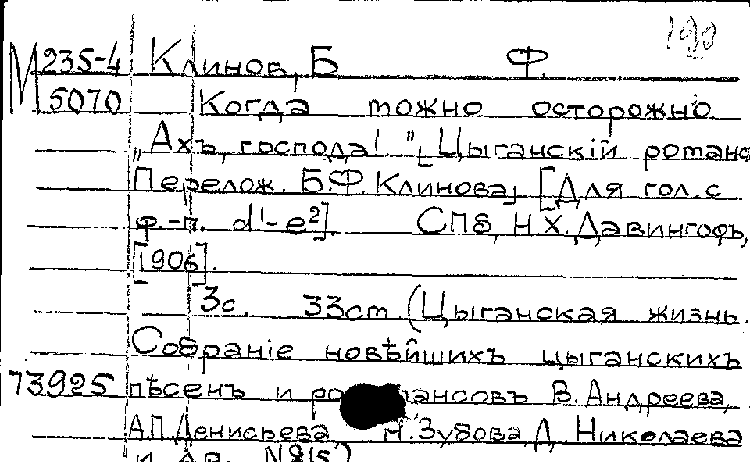 190
М 235-4 Клинов, Б Ф.
5070 Когда можно осторожно
„Ах, господа! "[Цыганскій романс
Перелож. Б.Ф. Клинова] [Для гол. с
ф.-п. d'-e²]. СПб, Н.Х. Давингоф,
[1906].
3с. 33см. (Цыганская жизнь.
Собраніе новѣйшихъ цыганскихъ
73925 пѣсенъ и романсовъ В. Андреева,
А.П. Денисьева Н. Зубова, Д. Николаева
и др. №815)